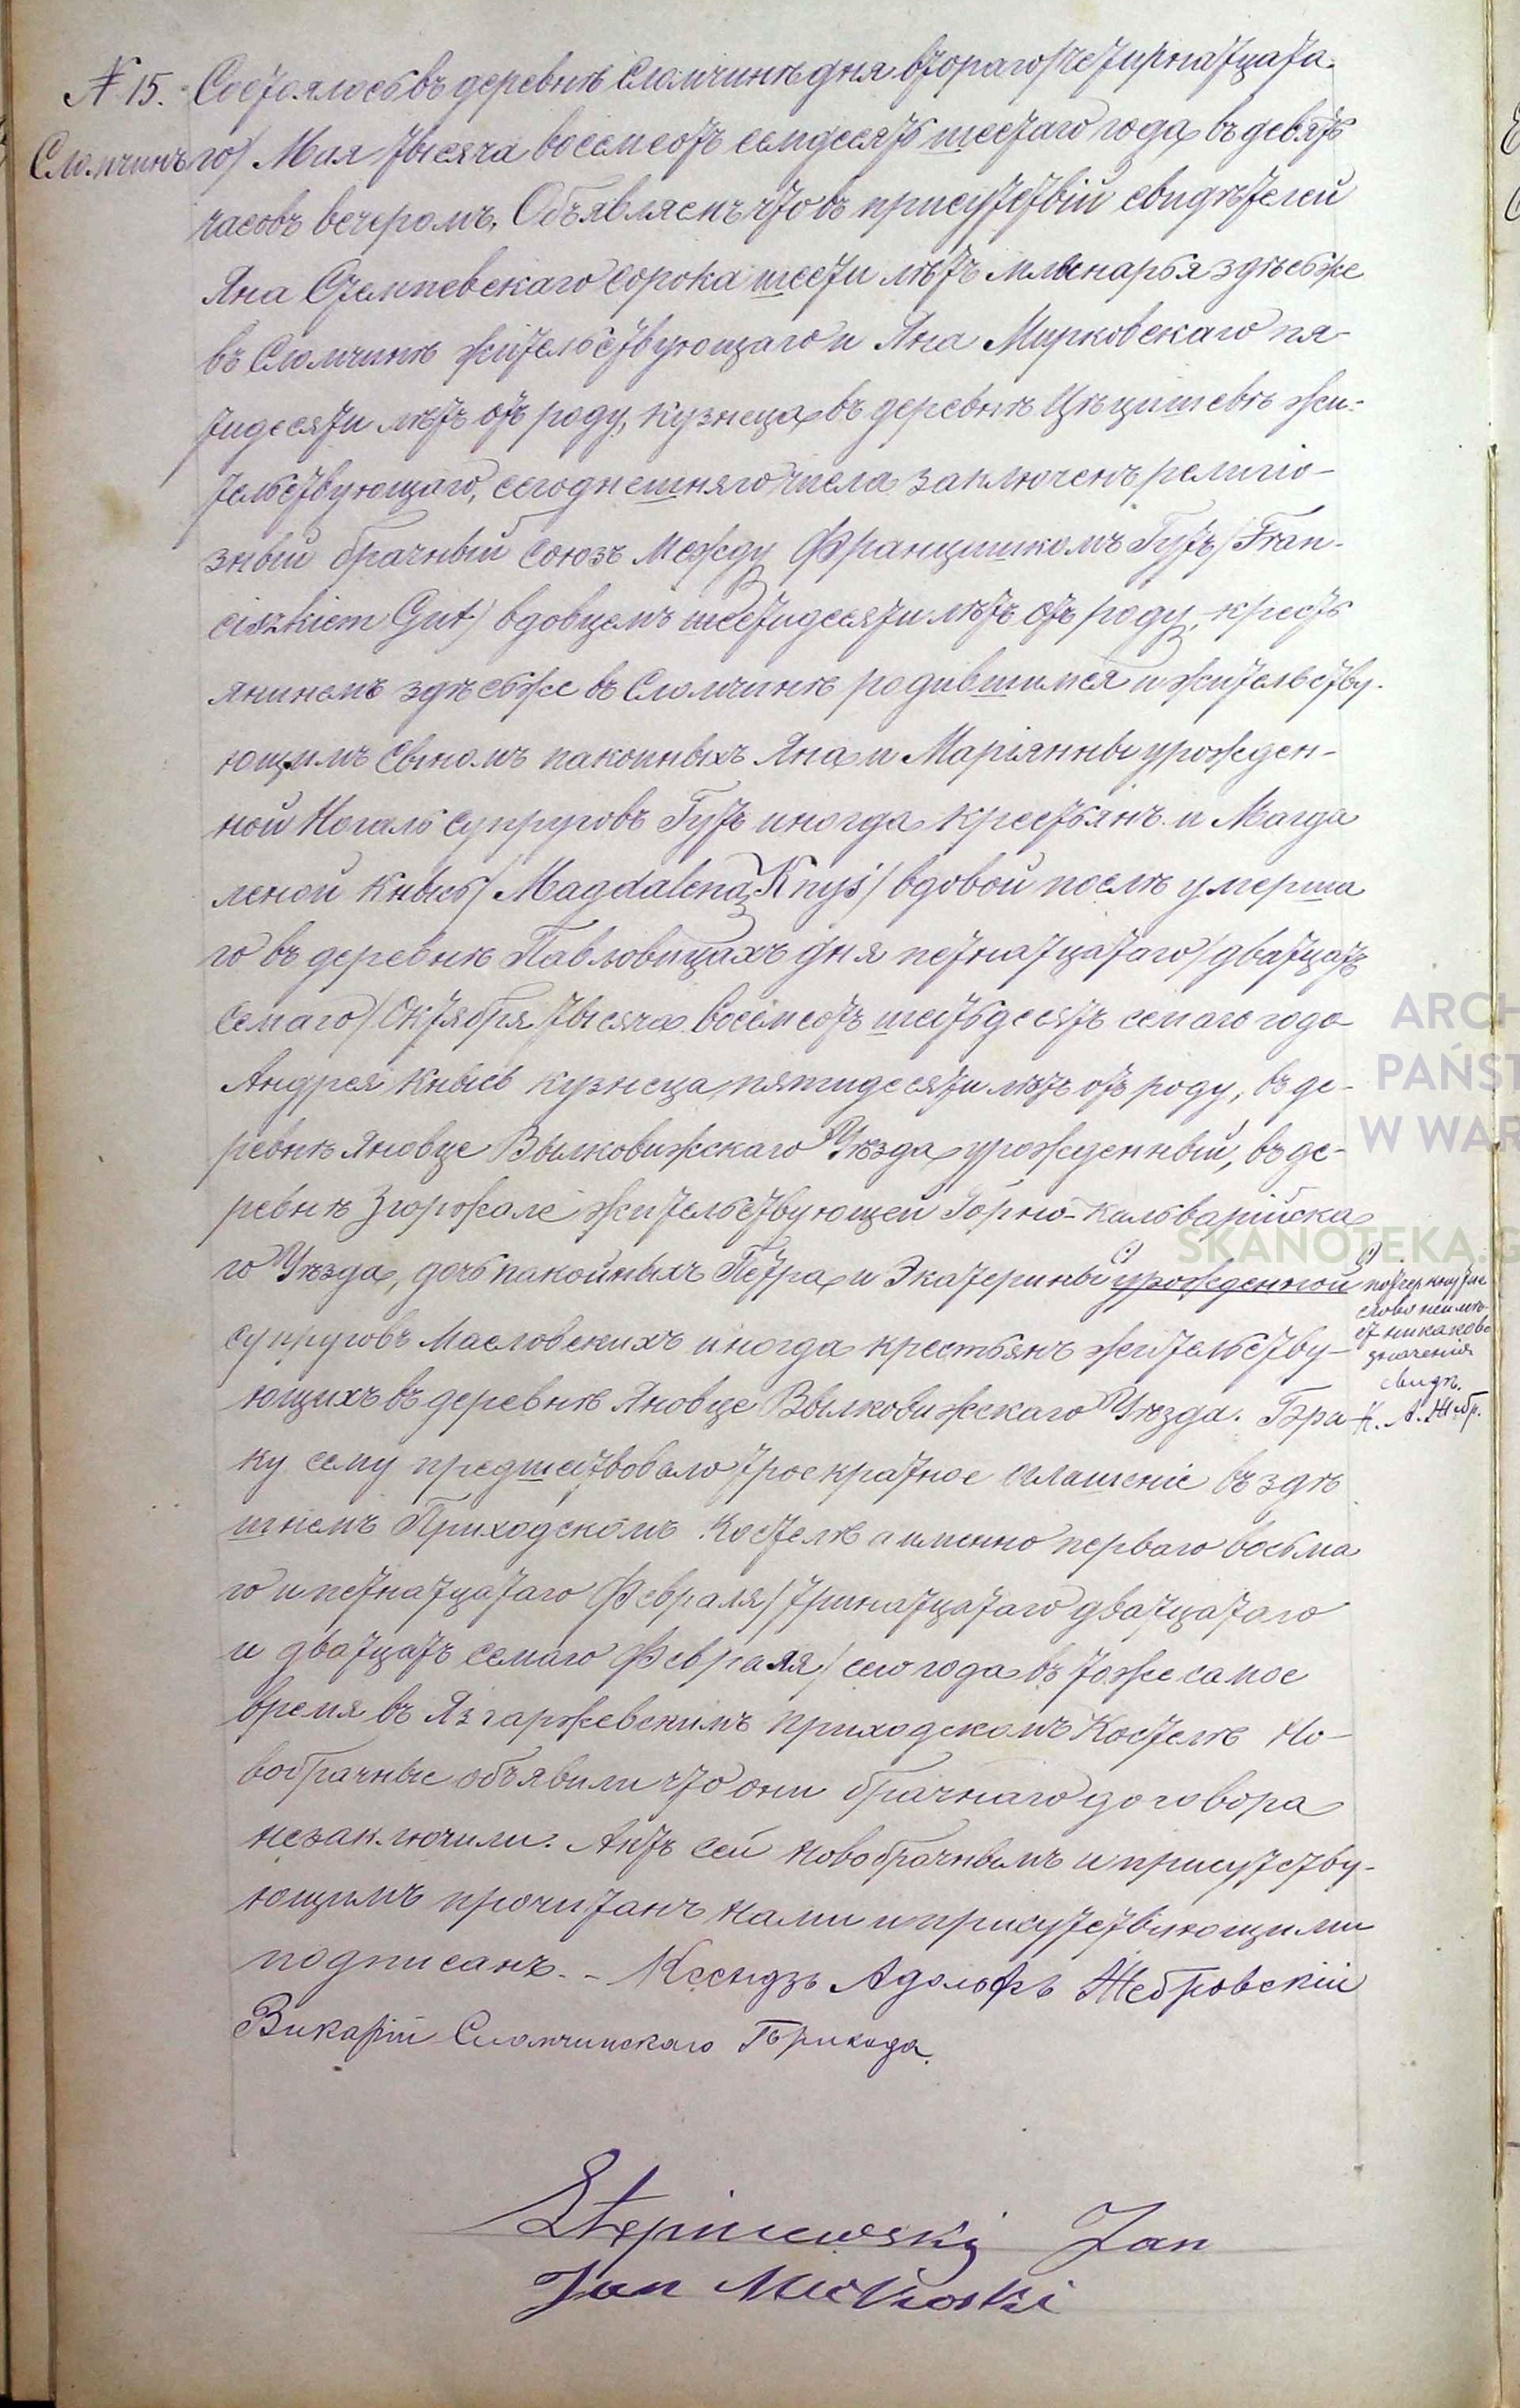 № 15.
Сломчинъ
Состоялось въ деревнѣ Сломчинѣ дня втораго/четирнатцата
го/ Мая тысяча восемсотъ семдесятъ шестаго года въ девять
часовъ вечеромъ. Объявляемъ что въ присутствій свидѣтелей
Яна Стемпевскаго сорока шести лѣтъ млынарья здѣсьже
въ Сломчинѣ жительствующаго и Яна Мирковскаго пя-
тидесяти лѣтъ отъ роду, кузнеца въ деревнѣ Цѣцишевѣ жи-
тельствующаго, сегоднешняго числа заключенъ религіо-
зный брачный союзъ между Францишкомъ Гутъ/Fran-
ciszkiem Gut/ вдовцемъ шестидесяти лѣтъ отъ роду, кресть
яниномъ здѣсьже въ Сломчинѣ родившимся и жительству-
ющимъ сыномъ покойныхъ Яна и Маріянны урожден-
ной Ногаль супруговъ Гутъ иногда крестьянъ и Магда
леной Кнысь/ Magdaleną Knyś/ вдовой послѣ умерша
го въ деревнѣ Павловицахъ дня петнатцатаго/дватцать
семаго/ Октября тысяча восемсотъ шестьдесятъ семаго года
Андрея Кнысь кузнеца, пятидесяти лѣтъ отъ роду, въ де-
ревнѣ Яновце Вылковижскаго Уѣзда урожденный, въ де-
ревнѣ Згоржале жительствующей Горно-Кальварійска
го Уѣзда, дочь покойныхъ Петра и Экатерины урожденной
супруговъ Масловскихъ иногда крестьянъ жительству-
ющихъ въ деревнѣ Яновце Вылковижскаго Уѣзда. Бра-
ку сему предшествовало троекратное оглашеніе въ здѣ
шнемъ Приходскомъ Костелѣ а именно перваго восьма
го и петнатцатаго Февраля/тринатцатаго дватцатаго
и дватцать семаго Февраля/ сего года въ тоже самое
время въ Язгаржевскимъ приходскомъ Костелѣ Но-
вобрачные объявили что они брачнаго договора
незаключили. Актъ сей новобрачнымъ и присутству-
ющимъ прочитанъ нами и присутствующими
подписанъ. - Ксендзъ Адольфъ Жебровскій
Викарій Сломчинскаго Прихода.
потчеркнутое
слово неимѣ-
етъ никаково
значенія
свидѣ.
К. А. Жебр.
Stępniewski Jan
Jan Mirkoski
ARCH
PAŃST
W WAR
SKANOTEKA.G